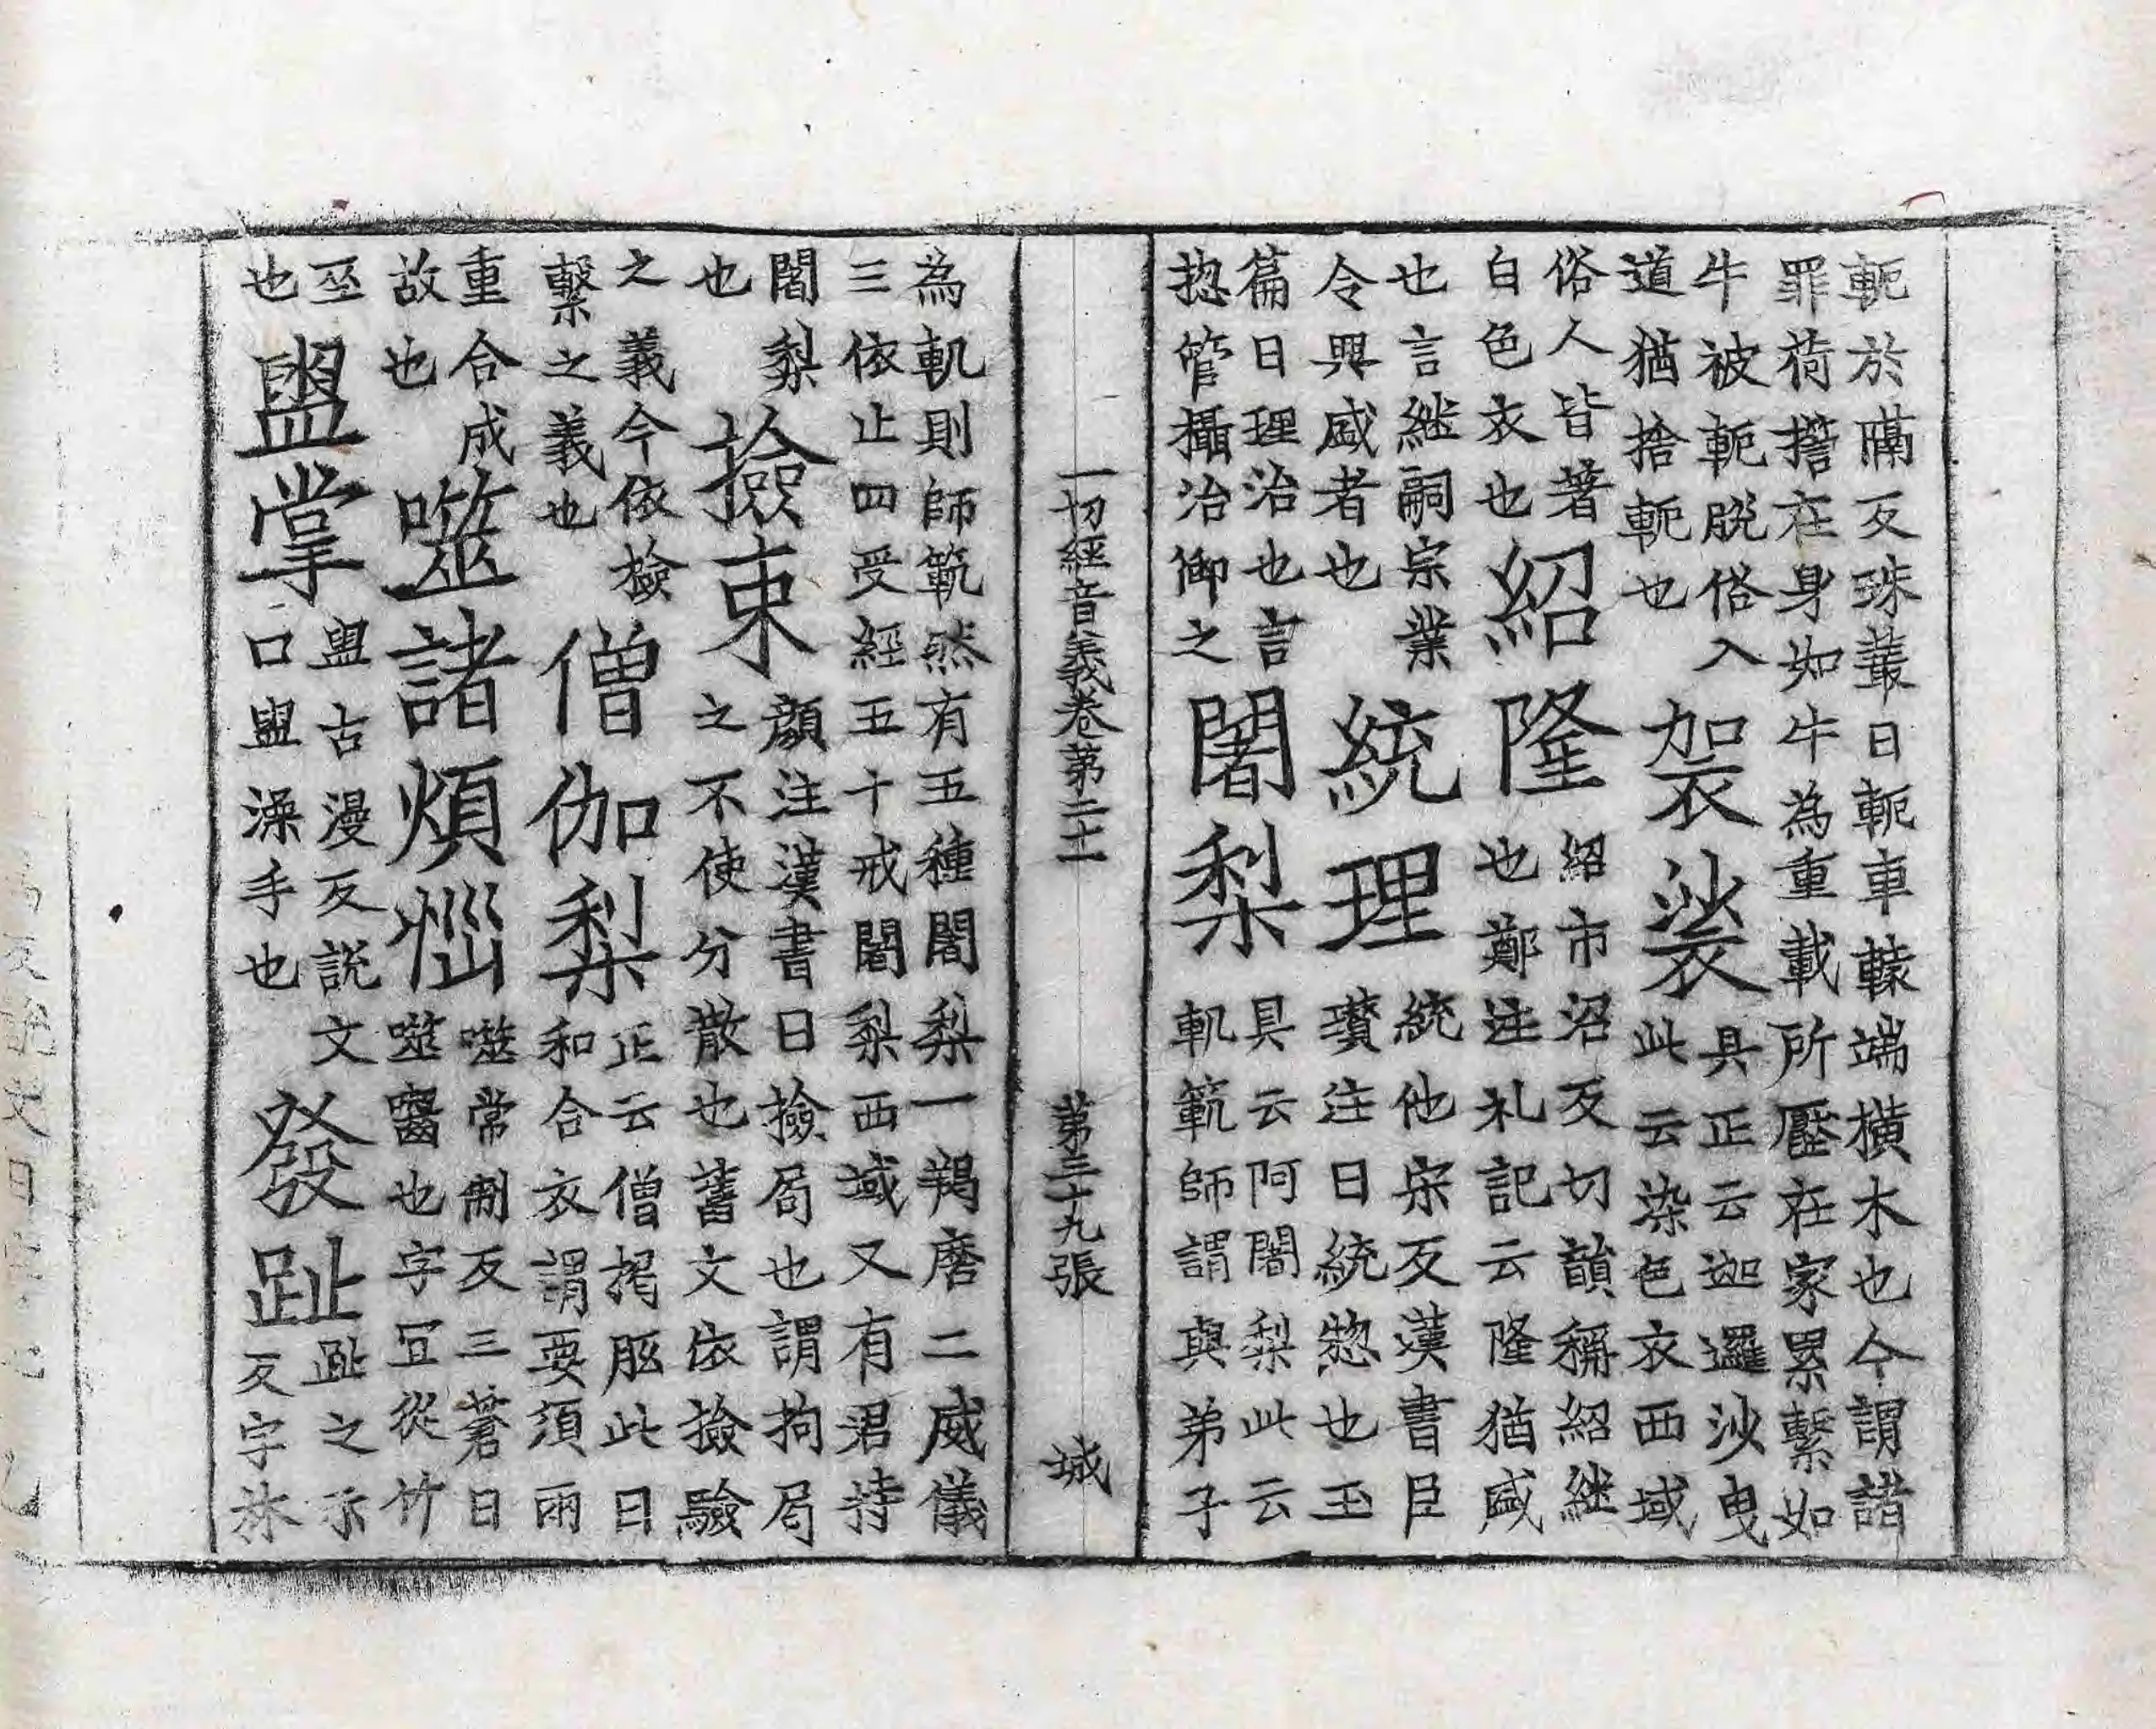 軛於隔反珠叢曰軛車轅端橫木也今謂諸
罪荷擔在身如牛為重載所壓在家累繫如
牛被軛脫俗入
道猶捨軛也
袈裟
具正云迦邏沙曳
此云染色衣西域
俗人皆著
白色衣也
紹隆
紹市沼反切韻稱紹継
也鄭注礼記云隆猶盛
也言継嗣宗業
令興盛者也
統理
統他宋反漢書臣
瓚注曰統惣也玉
篇曰理治也言
揔管攝治御之
闍梨
具云阿闍梨此云
軌範師謂與弟子
一切經音義卷第二十一 第三十九張 城
為軌則師範然有五種闍梨一羯磨二威儀
三依止四受經五十戒闍梨西域又有君持
闍梨
也
撿束
顏注漢書曰撿局也謂拘局
之不使分散也舊文依撿驗
之義今依撿
繫之義也
僧伽梨
正云僧揭胝此曰
和合衣謂要須兩
重合成
故也
噬諸煩惱
噬常制反三蒼曰
噬齧也字冝從竹
巫
也
盥掌
盥古漫反說文
口盥澡手也
發趾
趾之示
反字林